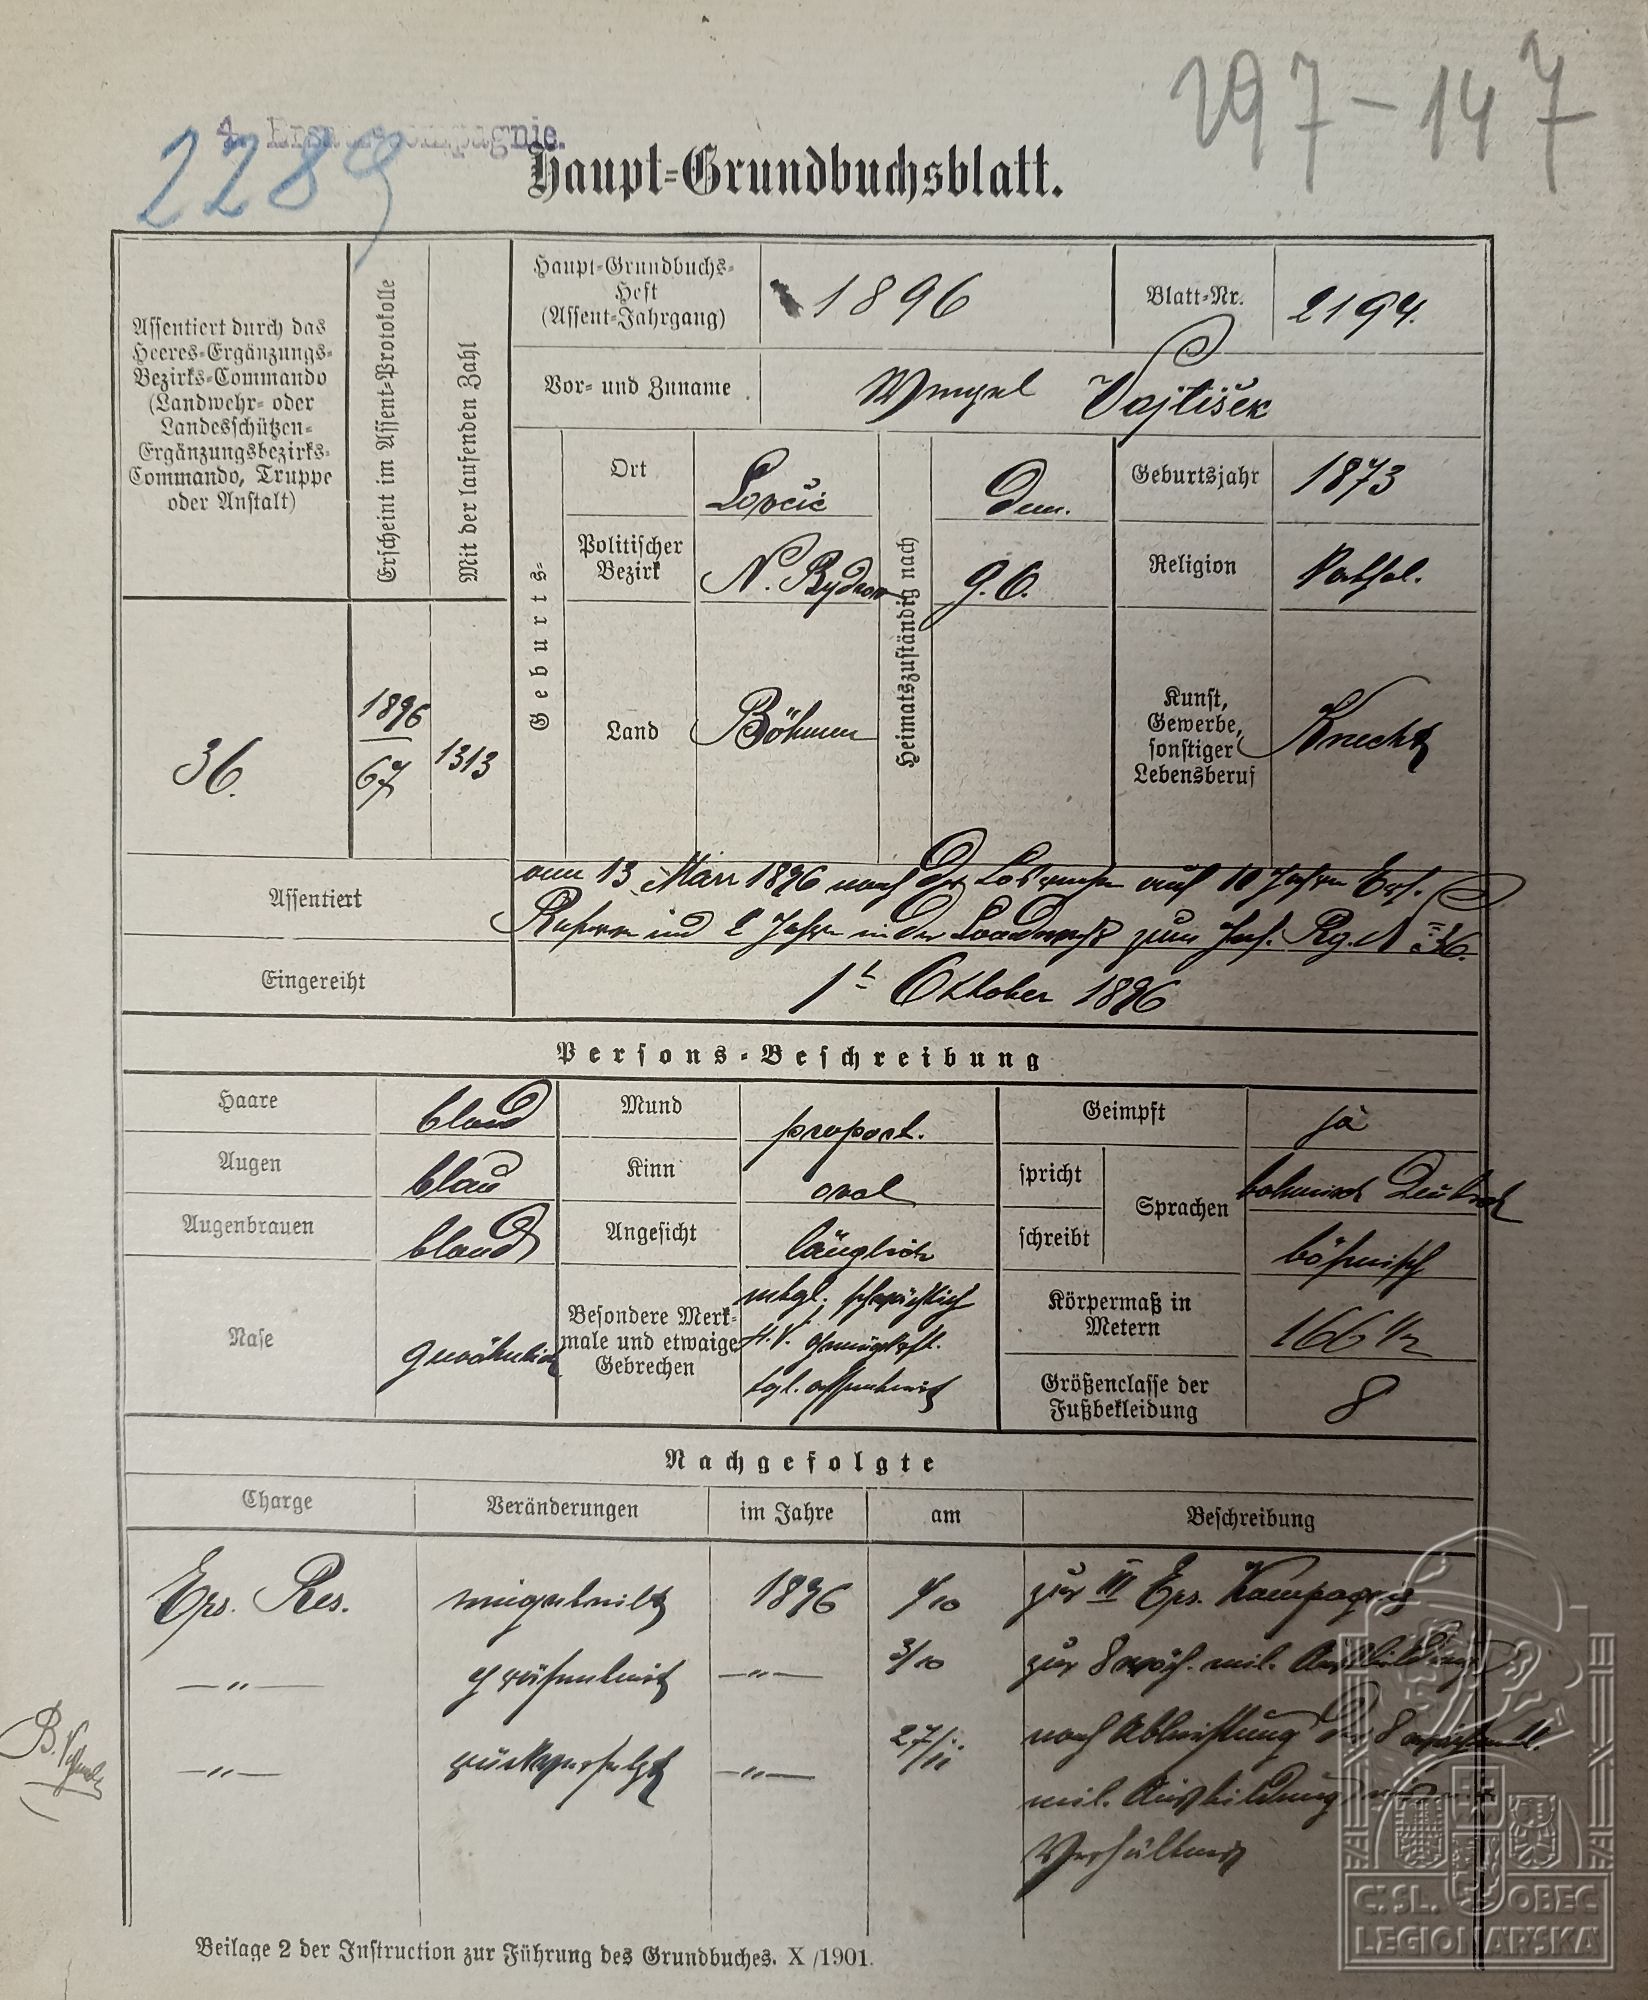 297-147
2289
4. Ersatzcompagnie.
Haupt-Grundbuchsblatt.
Assentiert durch das Heeres-Ergänzungs-Bezirks-Commando (Landwehr- oder Landesschützen-Ergänzungsbezirks-Commando, Truppe oder Anstalt)
Erscheint im Assent-Protokolle
Mit der laufenden Zahl
36.
1896
67
1313
Haupt-Grundbuchs-Heft (Assent-Jahrgang)
1896
Blatt-Nr.
2194.
Vor- und Zuname
Wenzel Vojtíšek
Geburts-
Ort
Lovčic
Politischer Bezirk
N. Bydzow
Land
Böhmen
Heimatszuständig nach
Geburtsjahr
1873
Religion
Kathol.
Kunst, Gewerbe, sonstiger Lebensberuf
Knecht
Assentiert
am 13. März 1896 nach der Losreihe auf 10 Jahre Ers.
Reserve und 2 Jahre in der Landwehr zum Inf. Rg. N 36.
Eingereiht
1t Oktober 1896
Persons-Beschreibung
Haare
blond
Mund
proport.
Geimpft
ja
Augen
blau
Kinn
oval
spricht
Sprachen
böhmisch Deutsch
Augenbrauen
blond
Angesicht
länglich
schreibt
böhmisch
Nase
gewöhnlich
Besondere Merkmale und etwaige Gebrechen
mtgl. schwächlich
tgl. assentiert
Körpermaß in Metern
166 1/2
Größenclasse der Fußbekleidung
8
Nachgefolgte
Charge
Veränderungen
im Jahre
am
Beschreibung
Ers. Res.
eingetheilt
1896
1/10
zur III Ers. Kompagnie
—„—
präsentiert
—„—
3/10
zur 8 wöch. mil. Ausbildung
—„—
rückversetzt
—„—
27/11
nach Ableistung der 8 wöchentl.
mil. Ausbildung
Verhältnis
Beilage 2 der Instruction zur Führung des Grundbuches. X/1901.
Č.SL. OBEC
LEGIONÁŘSKÁ